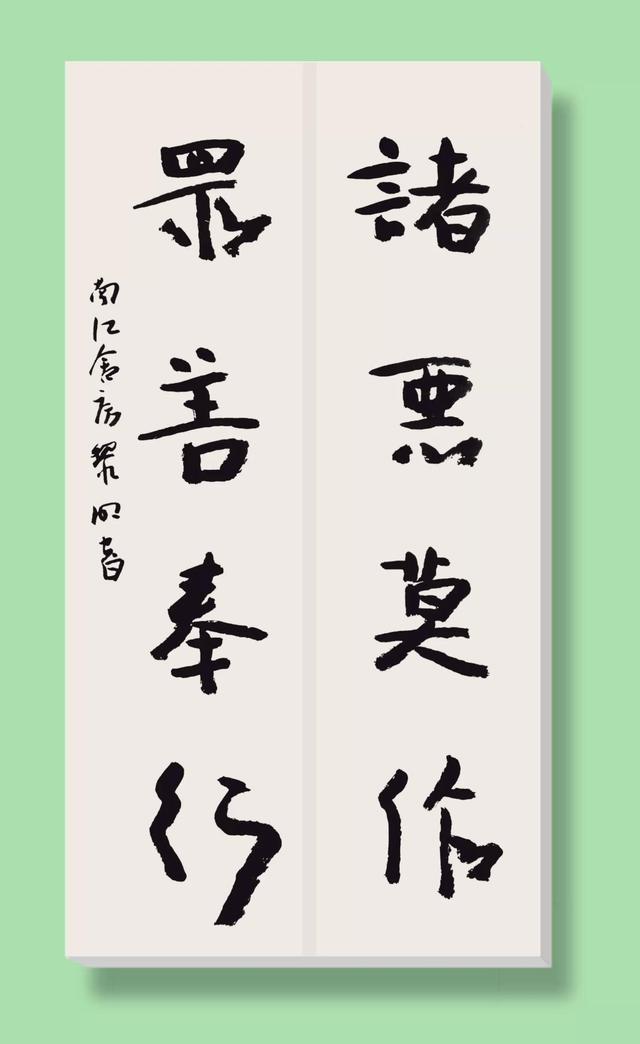 諸惡莫作
眾善奉行
南江舍房黎明書